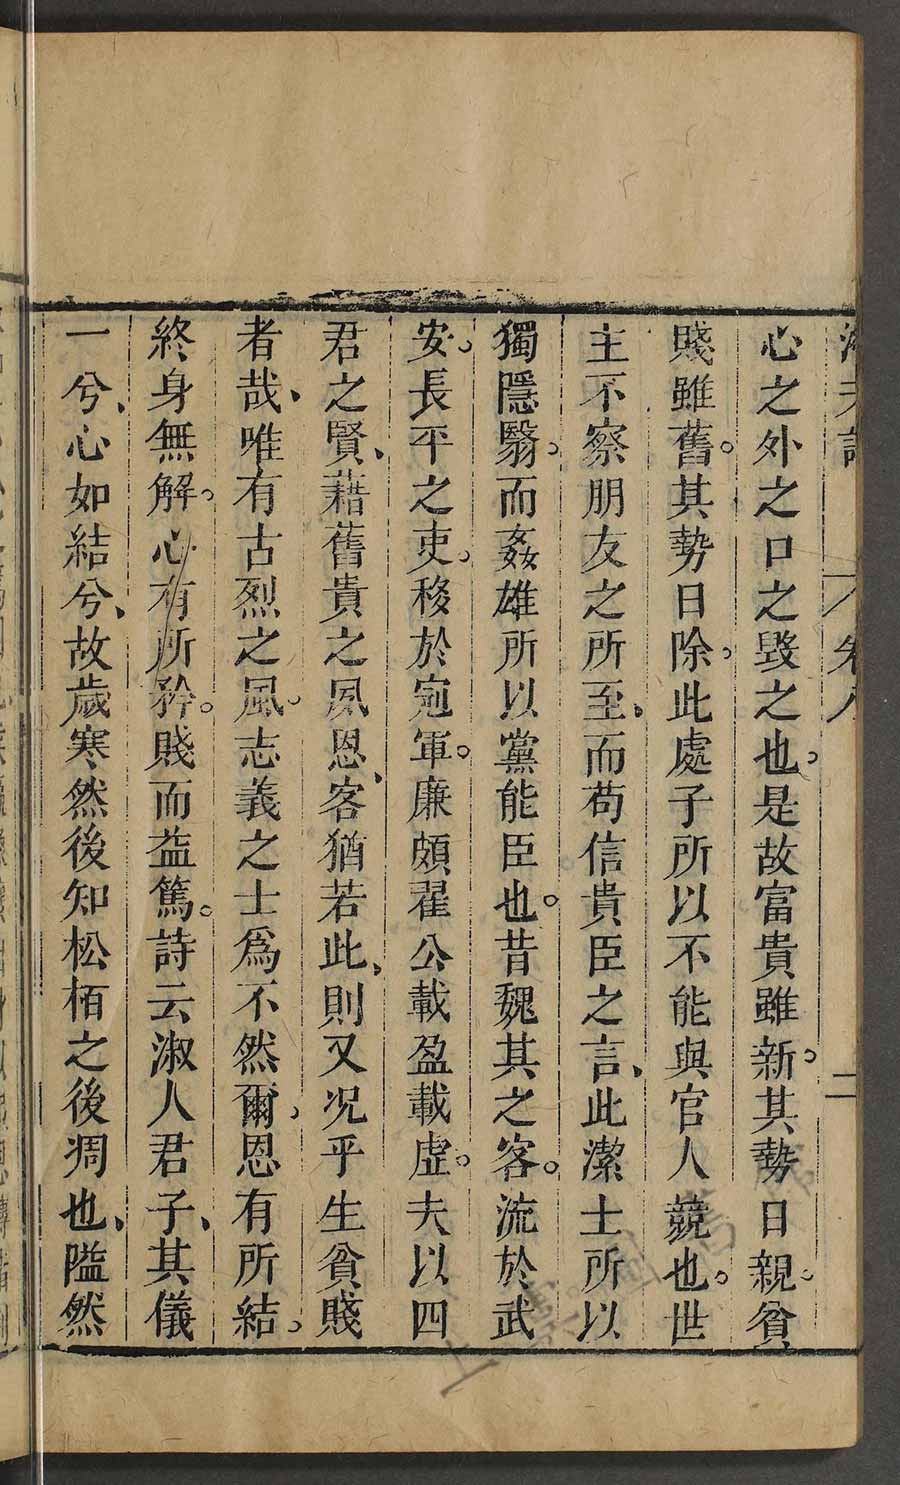 心之外之口之毀之也。是故富貴雖新。其勢日親。貧
賤雖舊。其勢日除。此處子所以不能與官人競也。世
主不察朋友之所至、而苟信貴臣之言、此潔士所以
獨隱翳。而姦雄所以黨能臣也。昔魏其之客。流於武
安。長平之吏。移於宛軍。廉頗翟公載盈載虛。夫以四
君之賢、藉舊貴之夙恩、客猶若此、則又况乎生貧賤
者哉、唯有古烈之風。志義之士爲不然爾、恩有所結。
終身無解。心有所矜。賤而益篤。詩云淑人君子、其儀
一兮、心如結兮、故歲寒然後知松栢之後凋也、隘然